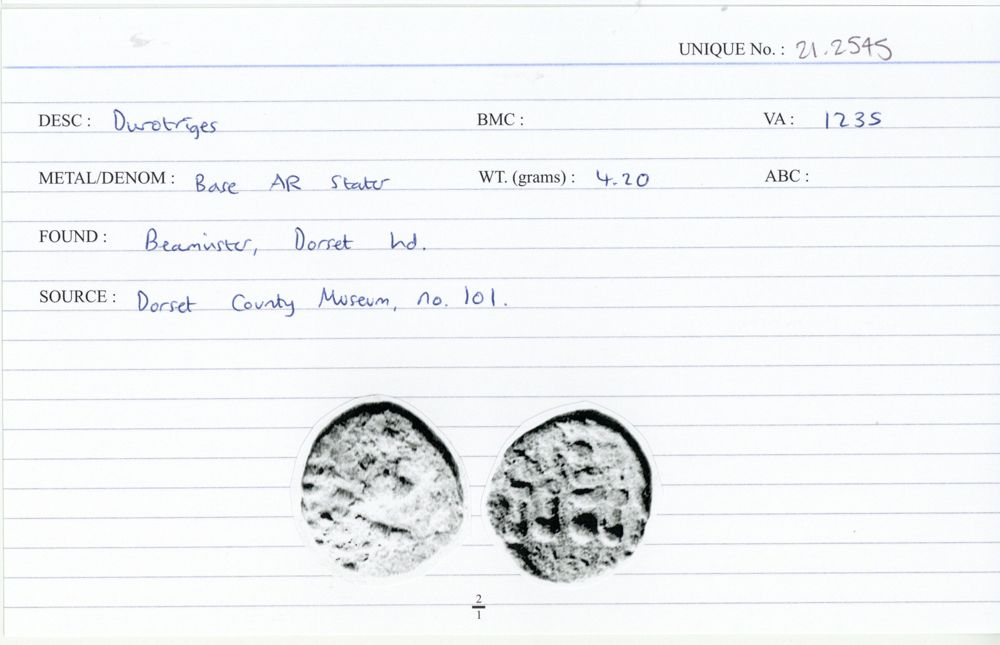 UNIQUE No. : 21.2545
DESC : Durotriges BMC : VA : 1235
METAL/DENOM : Base AR Stater WT. (grams) : 4.20 ABC :
FOUND : Beaminster, Dorset hd.
SOURCE : Dorset County Museum, no. 101.
2
1